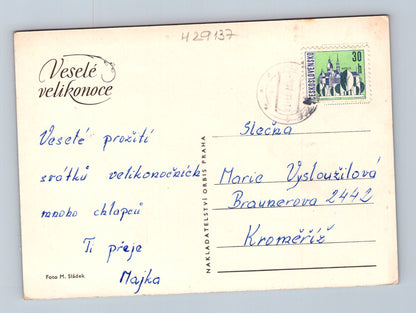 429137
Veselé
velikonoce
Veselé prožití
svátků velikonočních
mnoho chlapců
Ti přeje
Majka
Foto M. Sládek
NAKLADATELSTVÍ ORBIS PRAHA
ČESKOSLOVENSKO
30 h
Slečna
Marie Vysloužilová
Braunerova 2442
Kroměříž